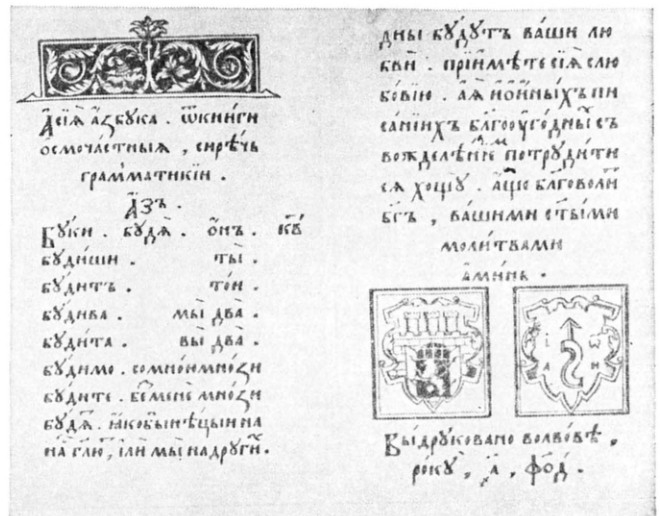 А сїѧ а҆́збꙋка . ѿ книги
ѻ҆смочастныѧ , сирѣчь
грамматикїи .
А҆́зъ .
Бꙋ́ки . бꙋ́дѧ . о҆́нъ .
бꙋ́диши . ты̀ .
бꙋ́дитъ . то́и .
бꙋ́дива . мы̀ два̀ .
бꙋ́дита . вы̀ два̀ .
бꙋ́димо . со мно́и мно́ѕи
бꙋ́дите . беⷥ менѐ мно́ѕи
бꙋ́дѧ .
на гл҃ю , и҆лѝ мы̀ на дрꙋги́ⷯ .
дны бꙋ́дꙋтъ ва́ши лю
бвѝ . прїими́те сїѧ̀ с лю
бо́вїю . а҆ ѧ҆̀ и҆ и҆нны́хъ пи
са́нїихъ бл҃гоꙋго́дныⷯ съ
вожделѣ́нїеⷨ потрꙋди́ти
сѧ хощꙋ̀ . а҆́ще бл҃говоли́тъ
бг҃ъ , ва́шими ст҃ы́ми
моли́твами
а҆ми́нь .
І Ѡ
А Н
Вы́дрꙋковано во лво́вѣ ,
ро́кꙋ , ҂а҃ , фо҃д .